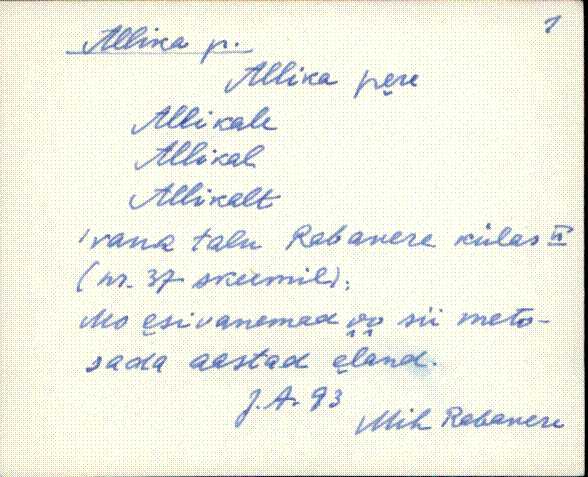 1
Allika p.
Allika pęre
Allikale
Allikal
Allikalt
vana talu Rabavere külas II
(nr. 37 skeemil).
Mo ęsivanemad oo sii meto-
sada aastad ęland.
J. A. 93
Mih Rabavere